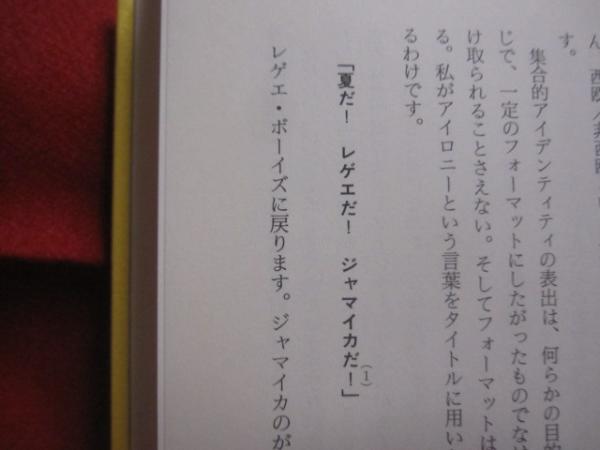 ん。西欧／非西欧
す。
集合的アイデンティティの表出は、何らかの目的
じで、一定のフォーマットにしたがったものでなけ
け取られることさえない。そしてフォーマットは
る。私がアイロニーという言葉をタイトルに用い
るわけです。
「夏だ！　レゲエだ！　ジャマイカだ！」(1)
レゲエ・ボーイズに戻ります。ジャマイカのが